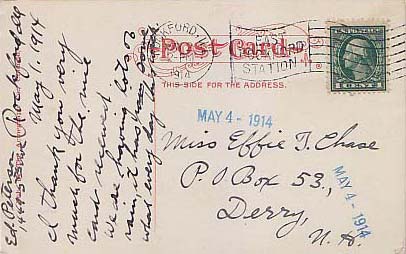 Post Card
THIS SIDE FOR THE ADDRESS.
ROCKFORD, ILL.
1914
EAST
ROCKFORD
STATION
U.S. POSTAGE
MAY 4 - 1914
MAY 4 - 1914
Miss Effie T. Chase
P.O Box 53,
Derry,
N.H.
Ed. Peterson
Ave Rockford Ill
May 1, 1914
I thank you very
much for the nice
card received.
We are having lots of
rain, it has
every day